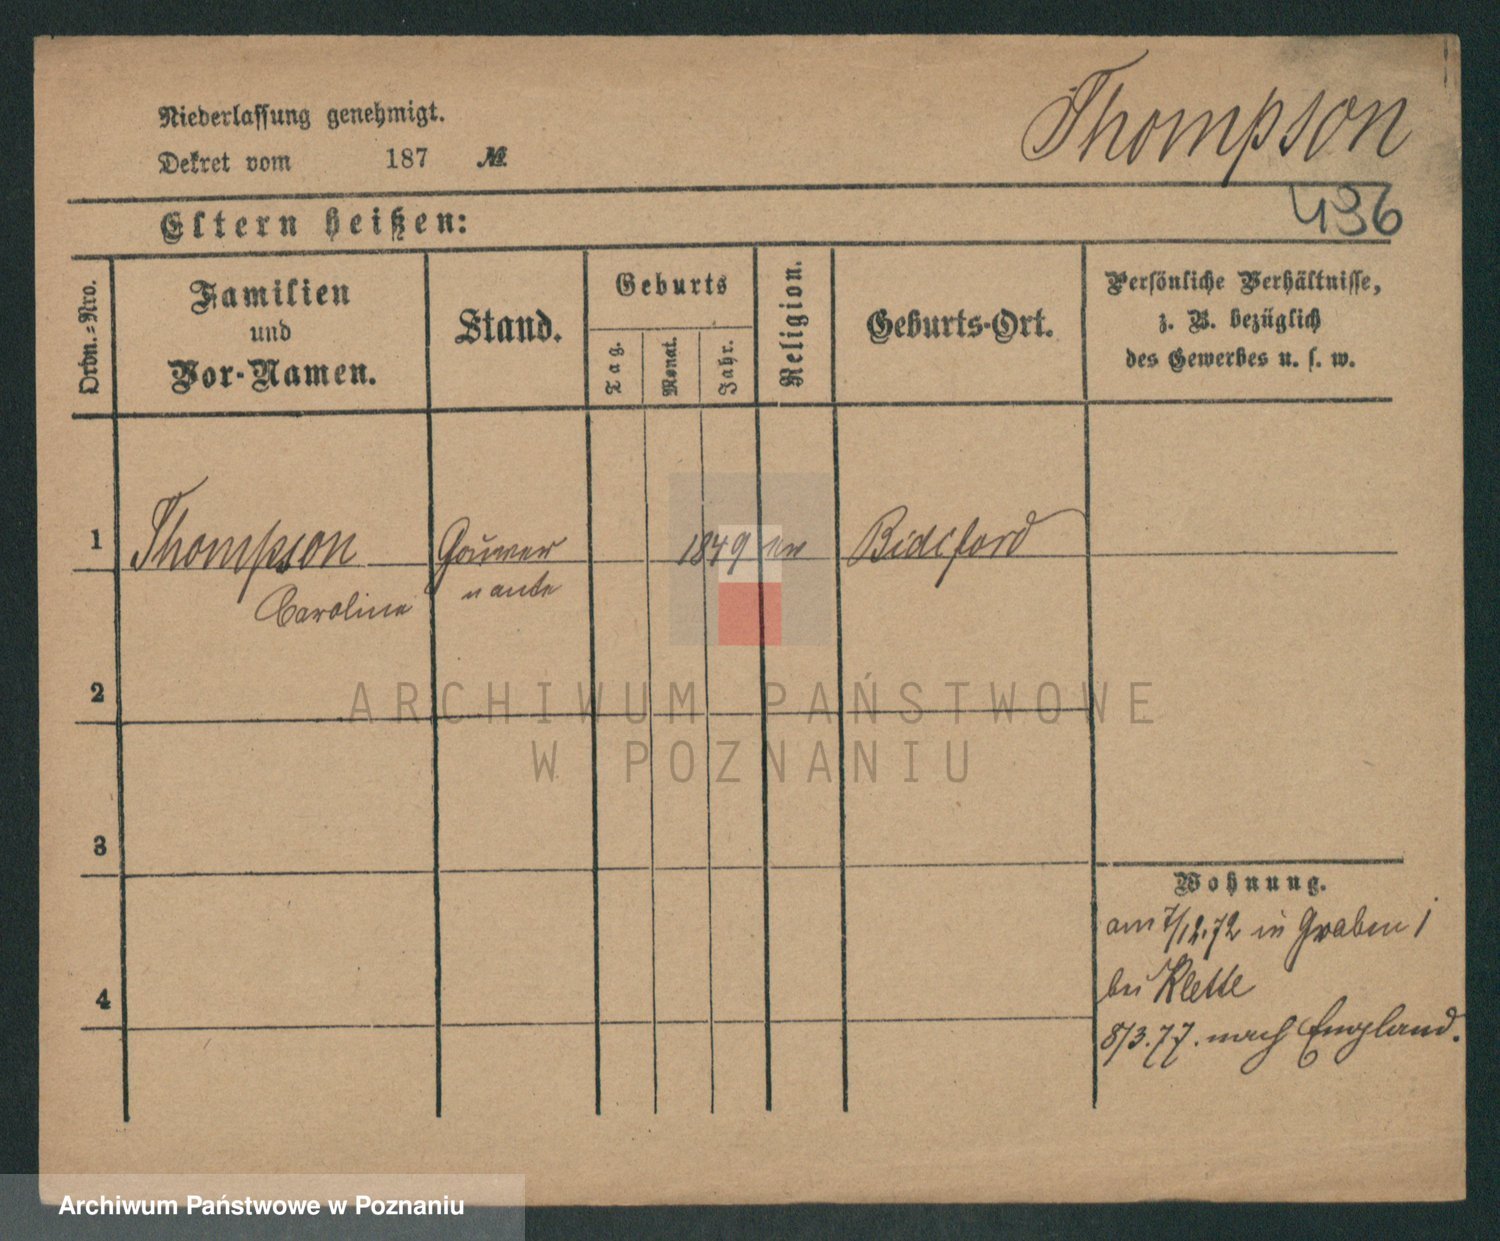 Thompson
Niederlassung genehmigt.
Dekret vom 187 №
436
Eltern heißen:
Ordn.=Nro.
Familien
und
Vor-Namen.
Stand.
Geburts
Tag.
Monat.
Jahr.
Religion.
Geburts-Ort.
Persönliche Verhältnisse,
z. B. bezüglich
des Gewerbes u. s. w.
1 Thompson Gouver 1849 ev Bideford
Caroline nante
2
ARCHIWUM PAŃSTWOWE
W POZNANIU
3
Wohnung.
am 7/12.72 in Graben 1
bei Klette
4
8/3.77. nach England.
Archiwum Państwowe w Poznaniu